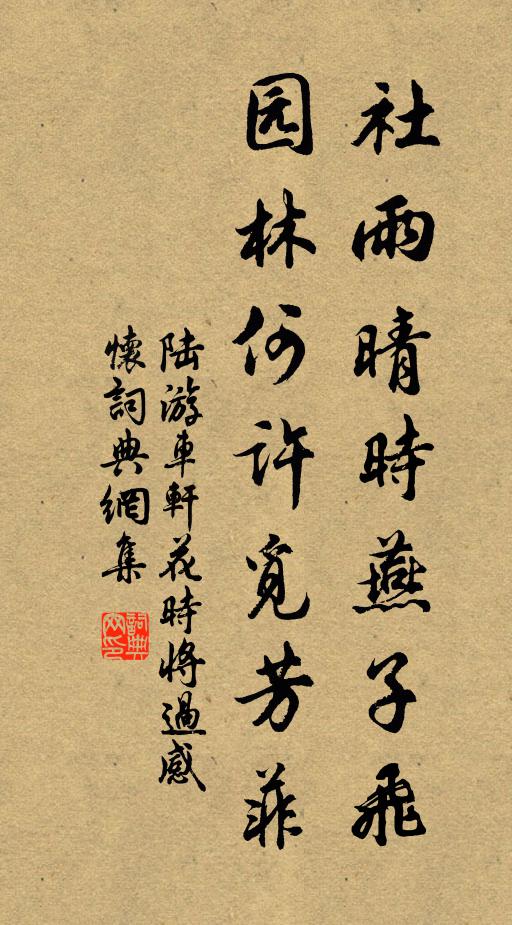 社雨晴時燕子飛
园林何許覓芳菲
陆游車軒花時将過感
懷詞典網集
詞典网印